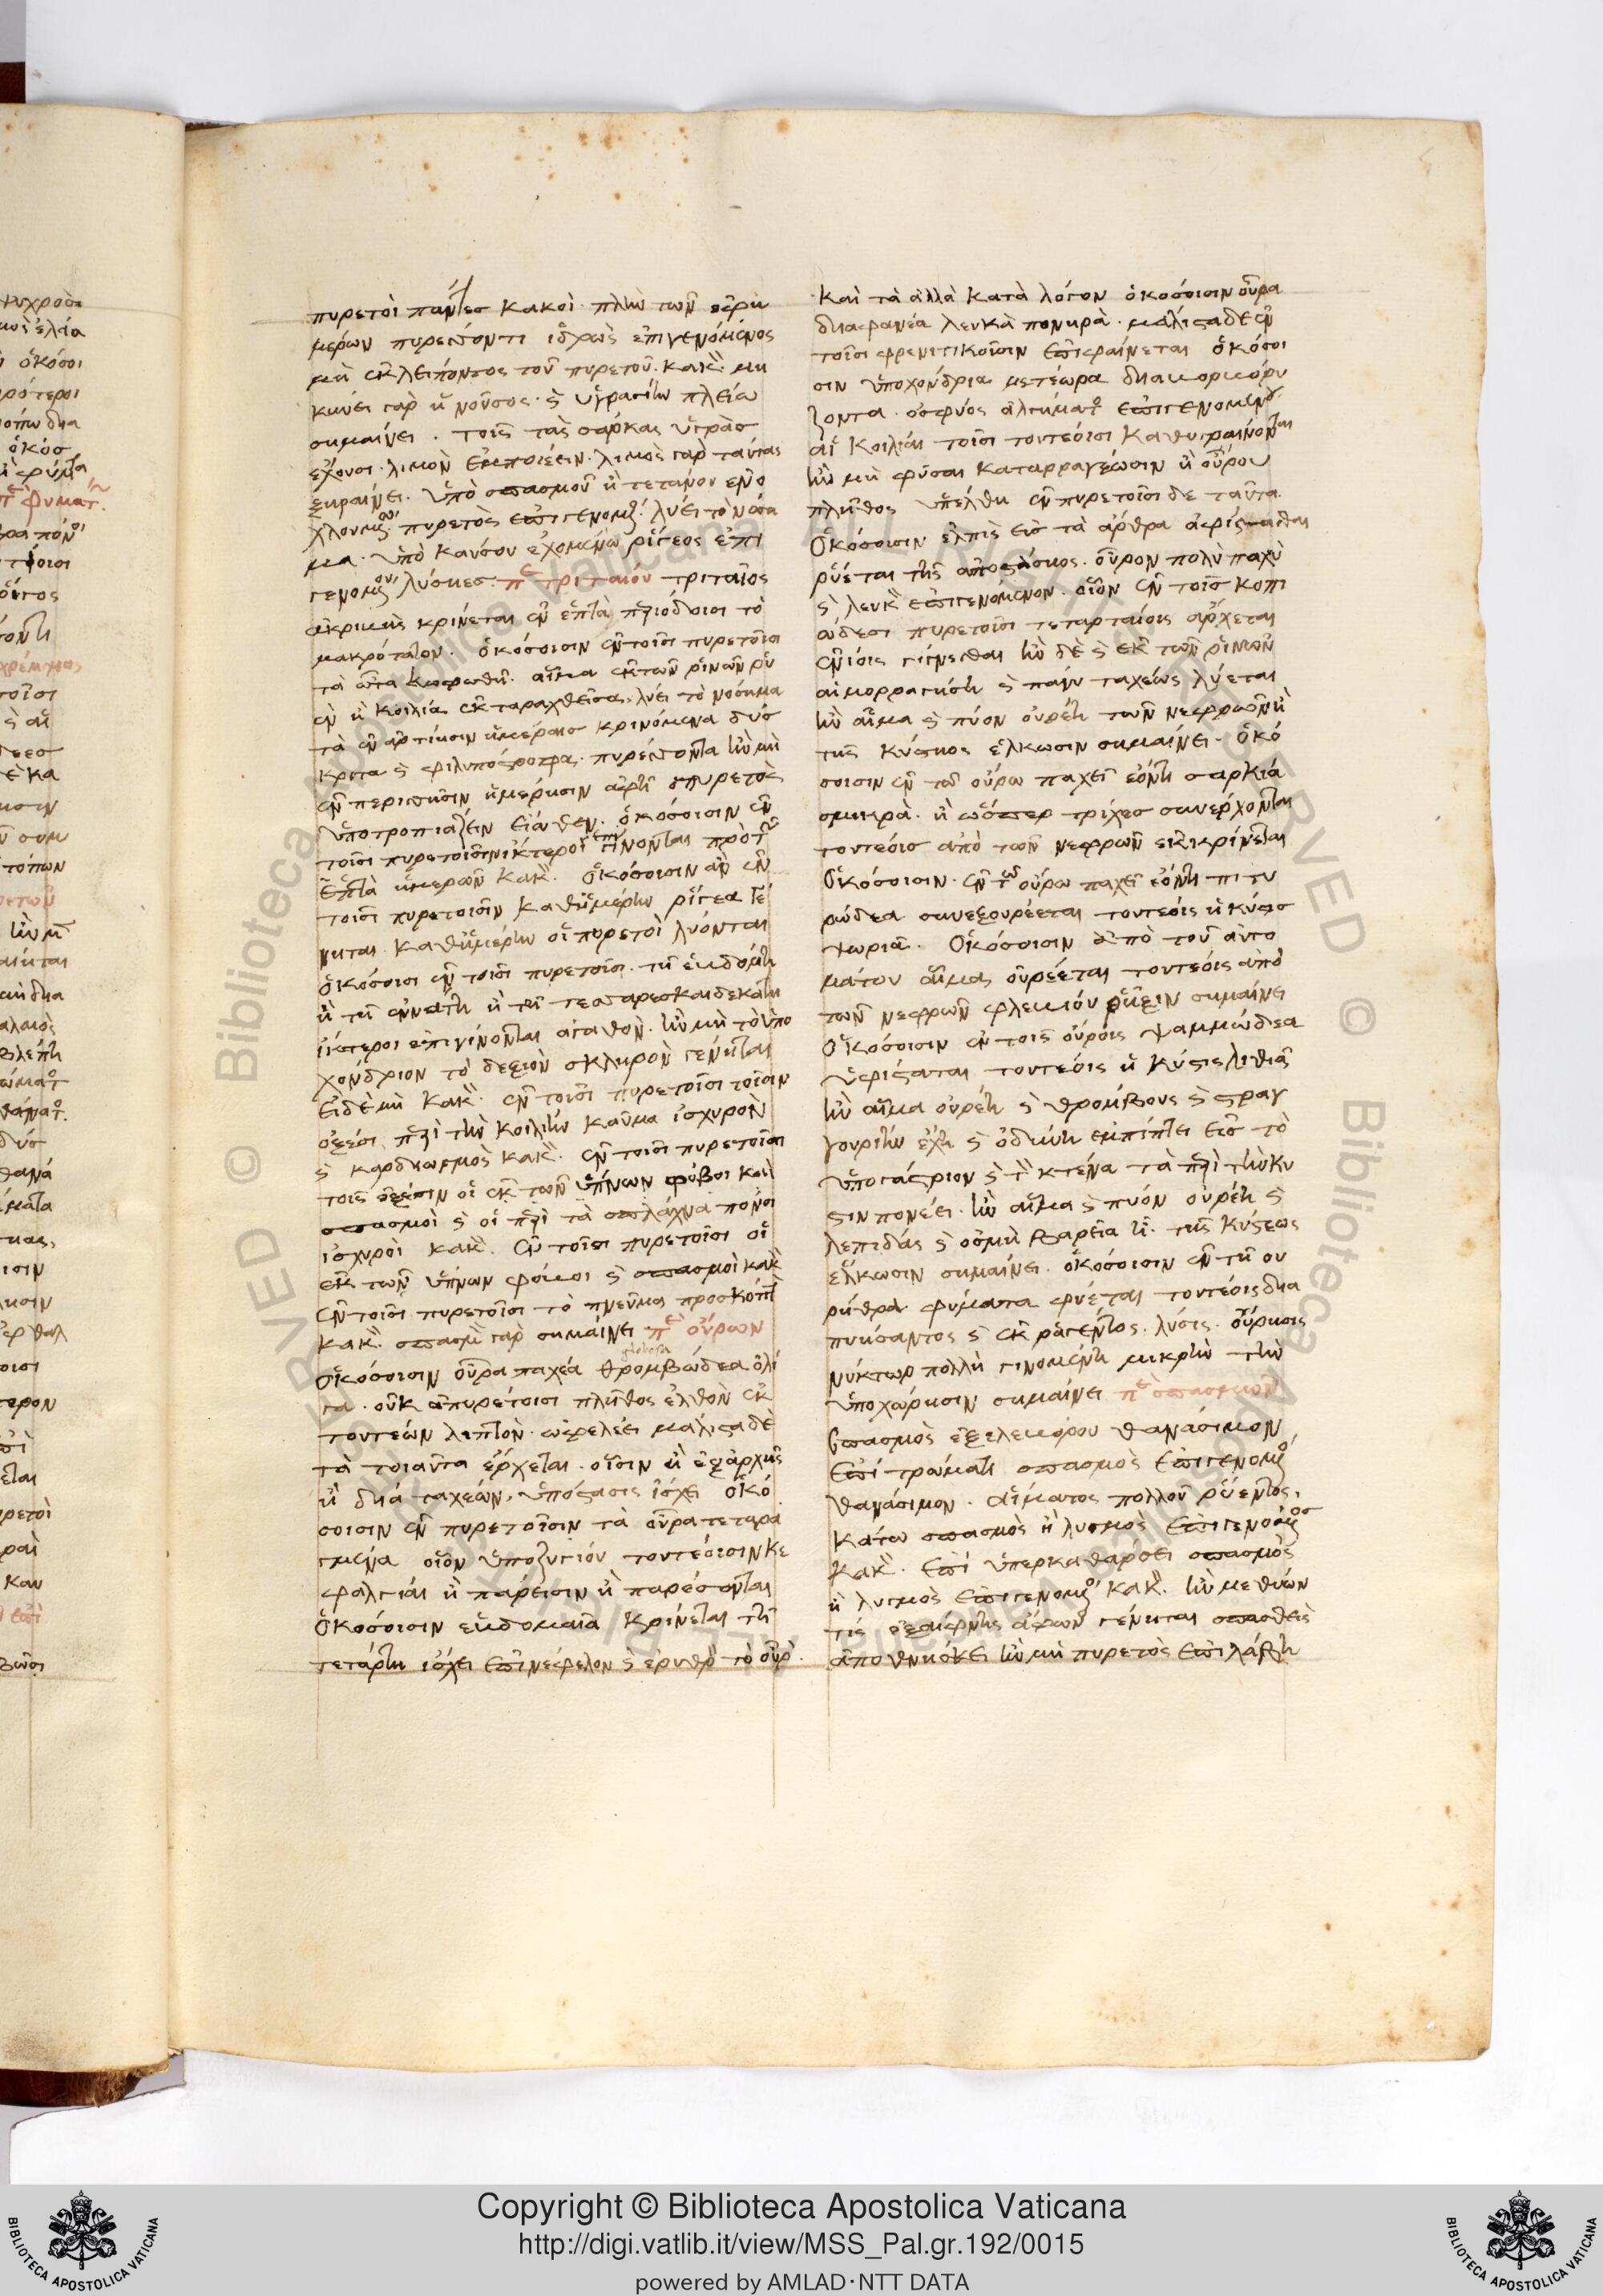 πυρετοὶ πάντες κακοὶ· πλὴν τῶν ἐφημ
μέρων πυρετόντι ἱδρὼς ἐπιγενόμενος
μὴ ἐκλείποντος τοῦ πυρετοῦ. κακ. μη
κύνει γὰρ ἡ νοῦσος· καὶ ὑγρασίην πλείω
σημαίνει. τοῖς τὰς σάρκας ὑγρὰς
ἔχουσι· λιμὸν ἐμποιέειν· λιμὸς γὰρ ταύτας
ξηραίνει. ὑπὸ σπασμοῦ ἢ τετάνου ἐνο
χλουμ πυρετὸς ἐπιγενομ λύει τὸ νόση
μα. ὑπὸ καύσου ἐχομένω ῥίγεος ἐπι
γενομ λύσιες· π τριταίου τριταῖος
ἀκριβὴς κρίνεται ἐν ἑπτὰ περιόδοισι τὸ
μακρότατον. ὁκόσοισιν ἐν τοῖσι πυρετοῖσι
τὰ ὦτα κωφωθῆ. αἷμα ἐκ τῶν ῥινῶν ῥυ
ἐν ἢ κοιλία ἐκταραχθεῖσα, λύει τὸ νόσημα
τὰ ἐν ἀρτίησιν ἡμέραισ κρινόμενα δύσ
κριτα καὶ φιλυπόστροφα. πυρέσσοντα ἢν μὴ
ἐν περισσῆσιν ἡμέρησιν ἀφῆ ὁ πυρετὸς
ὑποτροπιάζειν εἴωθεν. ὁκόσοισιν ἐν
τοῖσι πυρετοῖσιν ἴκτεροι ἐπιγίνονται πρὸ τ
ἑπτὰ ἡμερῶν κακ. ὁκόσοισιν ἂν ἐν
τοῖσι πυρετοῖσιν καθ' ἡμέρην ῥίγεα γέ
νηται καθ' ἡμέρην οἱ πυρετοὶ λύονται
ὁκόσοισι ἐν τοῖσι πυρετοῖσι. τῆ ἑβδόμη
ἢ τῆ ἐννάτη ἢ τῆ τεσσαρεσκαιδεκάτη
ἴκτεροι ἐπιγίνονται ἀγαθὸν. ἢν μὴ τὸ ὑπο
χόνδριον τὸ δεξιὸν σκληρὸν γένηται
εἰ δὲ μὴ κακ. ἐν τοῖσι πυρετοῖσι τοῖσιν
ὀξέσι περὶ τὴν κοιλίην καῦμα ἰσχυρὸν
καὶ καρδιωγμὸς κακ. ἐν τοῖσι πυρετοῖσι
τοῖς ὀξέσιν οἱ ἐκ τῶν ὕπνων φόβοι καὶ
σπασμοὶ καὶ οἱ περὶ τὰ σπλάχνα πόνοι
ἰσχυροὶ κακ. ἐν τοῖσι πυρετοῖσι οἱ
ἐκ τῶν ὕπνων φόβοι καὶ σπασμοὶ κακ
ἐν τοῖσι πυρετοῖσι τὸ πνεῦμα προσκόπτ
κακ. σπασμ γὰρ σημαίνει π οὔρων
ὁκόσοισιν οὖρα παχέα θρομβώδεα ὀλί
γα. οὐκ ἀπυρέτοισι πλῆθος ἐλθὸν ἐκ
τουτεών λεπτὸν ὠφελέει μάλιστα δὲ
τὰ τοιαῦτα ἔρχεται. οἷσιν ἢ ἐξ ἀρχῆς
ἢ διὰ ταχεών, ὑπόστασις ἴσχει ὁκό
σοισιν ἐν πυρετοῖσιν τὰ οὖρα τεταρα
γμένα οἷον ὑποζυγίου τουτέοισιν κε
φαλγίαι ἢ πάρεισιν ἢ παρέσονται
ὁκόσοισιν ἑβδομαῖα κρίνεται τῆ
τετάρτη ἴσχει ἐπινέφελον καὶ ἐρυθρ τὸ οὖρ.
καὶ τὰ ἄλλα κατὰ λόγον ὁκόσοισιν οὖρα
διαφανέα λευκὰ πονηρὰ. μάλιστα δὲ ἐν
τοῖσι φρενιτικοῖσιν ἐπιφαίνεται ὁκόσοι
σιν ὑποχόνδρια μετέωρα διαβορβορύ
ζοντα. ὀσφύος ἀλγήματ ἐπιγενομέν
αἱ κοιλίαι τοῖσι τουτέοισι καθυγραίνονται
ἢν μὴ φῦσαι καταρραγέωσιν ἢ οὔρου
πλῆθος ὑπέλθη ἐν πυρετοῖσι δὲ ταῦτα.
ὁκόσοισιν ἐλπὶς εἰσ τὰ ἄρθρα ἀφίστασθαι
ῥύεται τῆς ἀποστάσιος. οὖρον πολὺ παχὺ
καὶ λευκ ἐπιγενόμενον. οἷον ἐν τοῖς κοπι
ώδεσι πυρετοῖσι τεταρταίοις ἄρχεται
ἐνίοις γίγνεσθαι ἢν δὲ καὶ ἐκ τῶν ῥινῶν
αἱμορραγήση καὶ πάνυ ταχέως λύεται
ἢν αἷμα καὶ πύον οὐρέη τῶν νεφρῶν ἢ
τῆς κύστιος ἕλκωσιν σημαίνει. ὁκό
σοισιν ἐν τῶ οὔρω παχεῖ ἐόντι σαρκία
σμικρὰ. ἢ ὥσπερ τρίχες συνεξέρχονται
τουτέοισ ἀπὸ τῶν νεφρῶν ἐκκρίνεται
ὁκόσοισιν. ἐν τῶ οὔρω παχεῖ ἐόντι πιτυ
ρώδεα συνεξουρέεται τουτέοις ἡ κύστισ
ψωριᾶ. ὁκόσοισιν ἀπὸ τοῦ αὐτο
μάτου αἷμα οὐρέεται τουτέοις ἀπὸ
τῶν νεφρῶν φλεβίου ῥῆξιν σημαίνει
ὁκόσοισιν ἐν τοῖς οὔροις ψαμμώδεα
ὑφίσταται τουτέοις ἡ κύστις λιθιᾶ
ἢν αἷμα οὐρέη καὶ θρόμβους καὶ στραγ
γουρίην ἔχη καὶ ὀδύνη ἐμπίπτει εἰς τὸ
ὑπογάστριον καὶ τ κτένα τὰ περὶ τὴν κύ
στιν πονέει. ἢν αἷμα καὶ πυόν οὐρέη καὶ
λεπίδας καὶ ὀσμὴ βαρεῖα ἦ. τῆς κύστεως
ἕλκωσιν σημαίνει. ὁκόσοισιν ἐν τῆ οὐ
ρήθρα φύματα φύεται τουτέοις δια
πυήσαντος καὶ ἐκραγέντος. λύσις. οὔρησις
νύκτωρ πολλὴ γινομένη μικρὴν τὴν
ὑποχώρησιν σημαίνει π σπασμῶν
σπασμὸς ἐξ ἐλεβόρου θανάσιμον
ἐπὶ τρώματι σπασμὸς ἐπιγενομ
θανάσιμον. αἵματος πολλοῦ ῥυέντος.
κάτω σπασμὸς ἢ λυγμὸς ἐπιγενόμ
κακ. ἐπὶ ὑπερκαθάρσει σπασμὸς
ἢ λυγμὸς ἐπιγενομ κακ. ἢν μεθύων
τις ἐξαίφνης ἄφων γένηται σπασθεὶς
ἀποθνήσκει ἢν μὴ πυρετὸς ἐπιλάβη
Copyright © Biblioteca Apostolica Vaticana
http://digi.vatlib.it/view/MSS_Pal.gr.192/0015
powered by AMLAD·NTT DATA